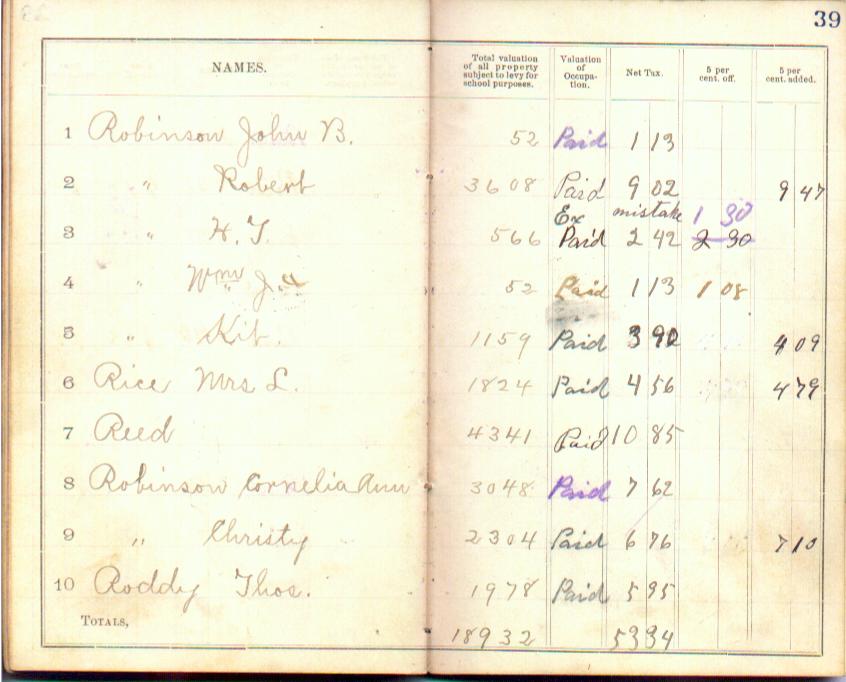 39
NAMES. Total valuation of all property subject to levy for school purposes. Valuation of Occupa-tion. Net Tax. 5 per cent. off. 5 per cent. added.
1 Robinson John B. 52 Paid 1 13
2 " Robert 3608 Paid 9 02 9 47
Ex mistake 1 30
3 " H. T. 566 Paid 2 42 2 30
4 " Wm J. 52 Paid 1 13 1 08
5 " Kit. 1159 Paid 3 90 4 09
6 Rice Mrs L. 1824 Paid 4 56 4 79
7 Reed 4341 Paid 10 85
8 Robinson Cornelia Ann 3048 Paid 7 62
9 " Christy 2304 Paid 6 76 7 10
10 Roddy Thos. 1978 Paid 5 95
TOTALS, 18932 53 34